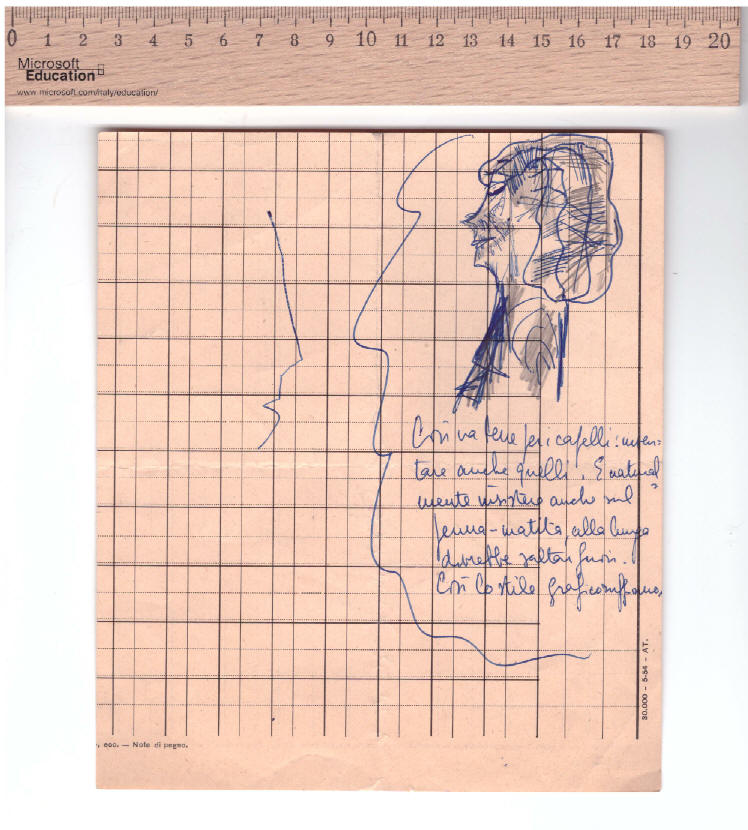 0 1 2 3 4 5 6 7 8 9 10 11 12 13 14 15 16 17 18 19 20
Microsoft
Education
www.microsoft.com/italy/education/
Così va bene per i capelli: inven=
tare anche quelli. E natural=
mente insistere anche sul
penna-matita, alla lunga
dovrebbe saltar fuori.
Così lo stile grafico
30.000 - 5-54 - AT.
, ecc. — Note di pegno.